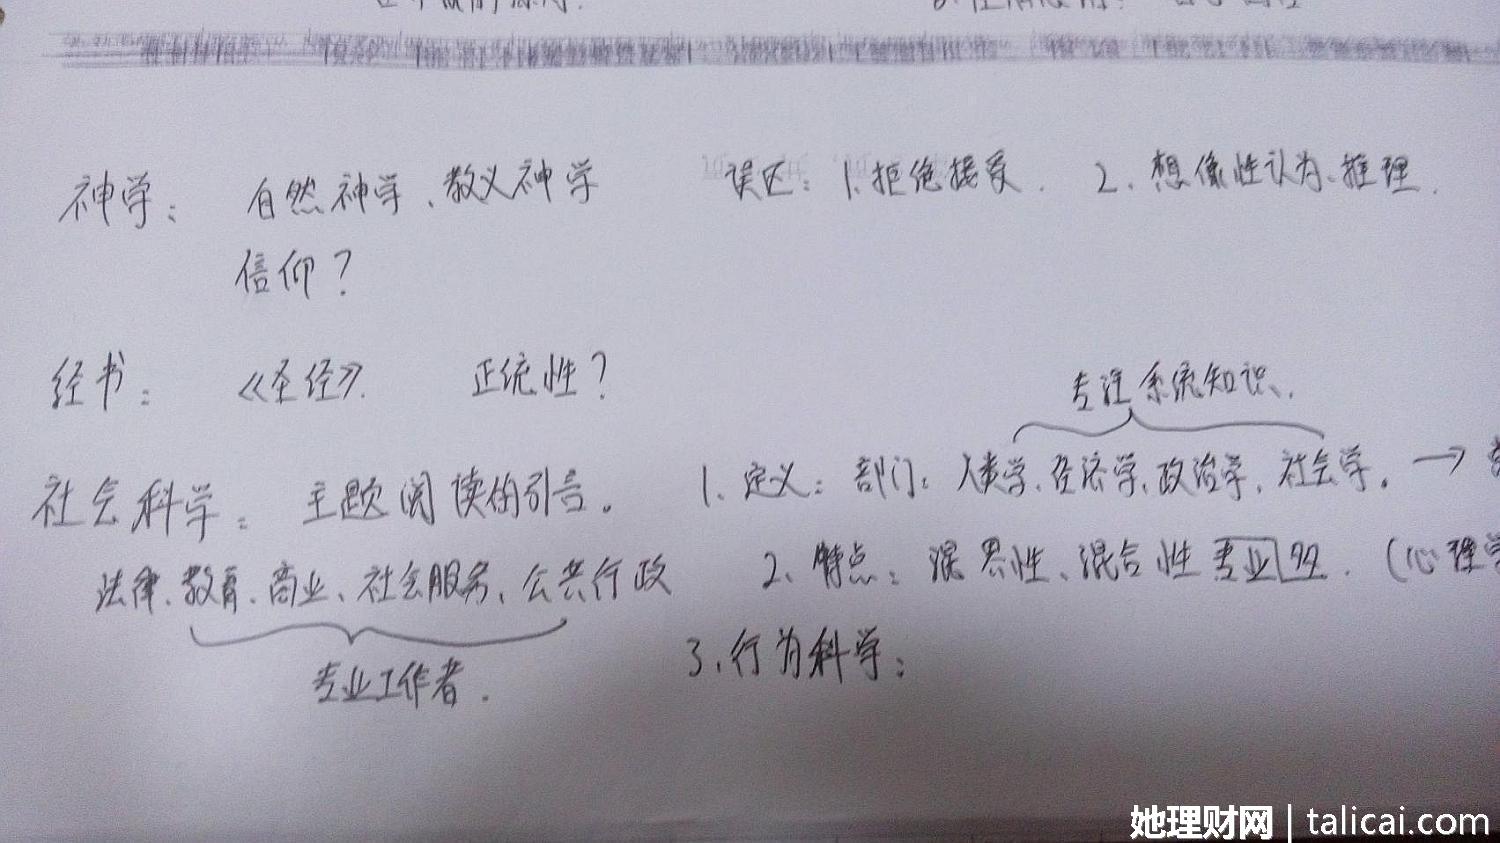 神学： 自然神学、教义神学
误区：1.拒绝接受． 2、想像性认为、推理．
信仰？
经书： 《圣经》． 正统性？
专注系统知识．
社会科学： 主题阅读的引言。
1、定义：部门：人类学、经济学、政治学、社会学。→
法律、教育、商业、社会服务、公共行政
2、特点：混合性 专业 (心理学
专业工作者．
3、行为科学：
她理财网 | talicai.com